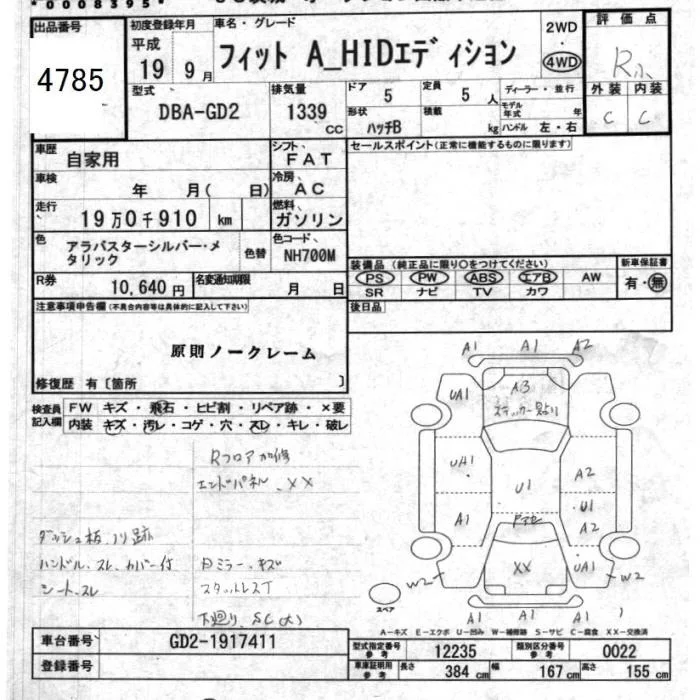 *00083395*
出品番号
4785
初度登録年月
平成
19年9月
車名・グレード
フィット A_HIDエディション
2WD
・
4WD
評価点
R
外装 内装
C C
型式
DBA-GD2
排気量
1339
CC
ドア 5
定員 5 人
形状 ハッチB
積載 kg
ディーラー・並行
モデル年式 年
ハンドル 左・右
車歴
自家用
シフト、
FAT
セールスポイント(正常に機能するものに限ります)
車検
年 月( 日)
冷房、
AC
走行
19万0千910 km
燃料、
ガソリン
色
アラバスターシルバー・メタリック
色替
色コード、
NH700M
装備品(純正品に限り○をつけてください)
新車保証書
PS PW ABS エアB AW
SR ナビ TV カワ
有・無
R券
10,640円
名変通知期限
月 日
後日品
注意事項申告欄(不具合内容等は具体的に記入して下さい)
原則ノークレーム
修復歴 有〔箇所 〕
検査員記入欄
FW キズ・飛石・ヒビ割・リペア跡・×要
内装・キズ・汚レ・コゲ・穴・スレ・キレ・破レ
Rフロア加修
エンドパネル.XX
ダッシュ板.ノリ跡
ハンドル.スレ.カバー付
シート.スレ
Dミラー.キズ
スタッドレスT
下廻り.SC(大)
A1 A1 A2
UA1 A3
ステッカー貼り
UA1 U1 A2
A1 U1
A2
ドアセ
XX UA1
W2 W2
スペア
A1 A1 A1
A―キズ E―エクボ U―凹み W―補修跡 S―サビ C―腐食 XX―交換済
車台番号
GD2-1917411
登録番号
型式指定番号 参考
12235
類別区分番号 参考
0022
車庫証明用 参考
長さ 384 cm
幅 167 cm
高さ 155 cm